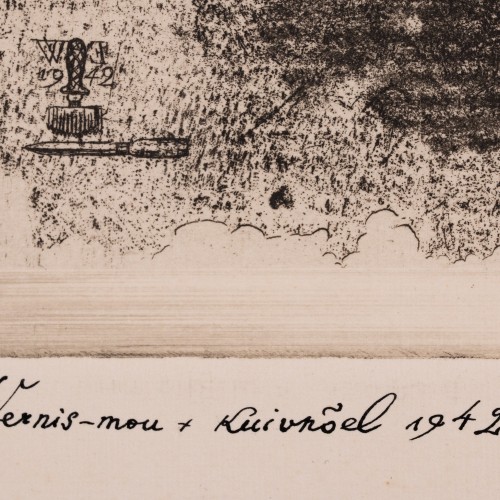 W J
1942
Vernis-mou + Kuivnõel 1942